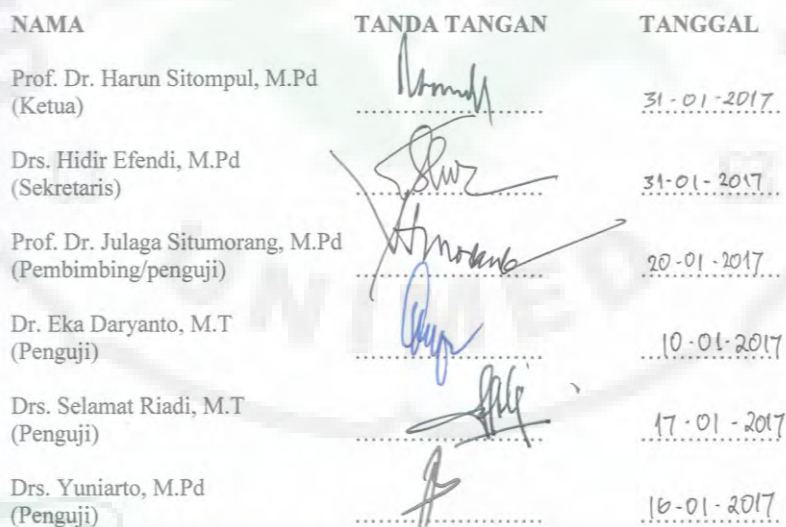 NAMA TANDA TANGAN TANGGAL
Prof. Dr. Harun Sitompul, M.Pd
(Ketua) 31-01-2017
Drs. Hidir Efendi, M.Pd
(Sekretaris) 31-01-2017
Prof. Dr. Julaga Situmorang, M.Pd
(Pembimbing/penguji) 20-01-2017
UNIMED
Dr. Eka Daryanto, M.T
(Penguji) 10-01-2017
Drs. Selamat Riadi, M.T
(Penguji) 17-01-2017
Drs. Yuniarto, M.Pd
(Penguji) 16-01-2017